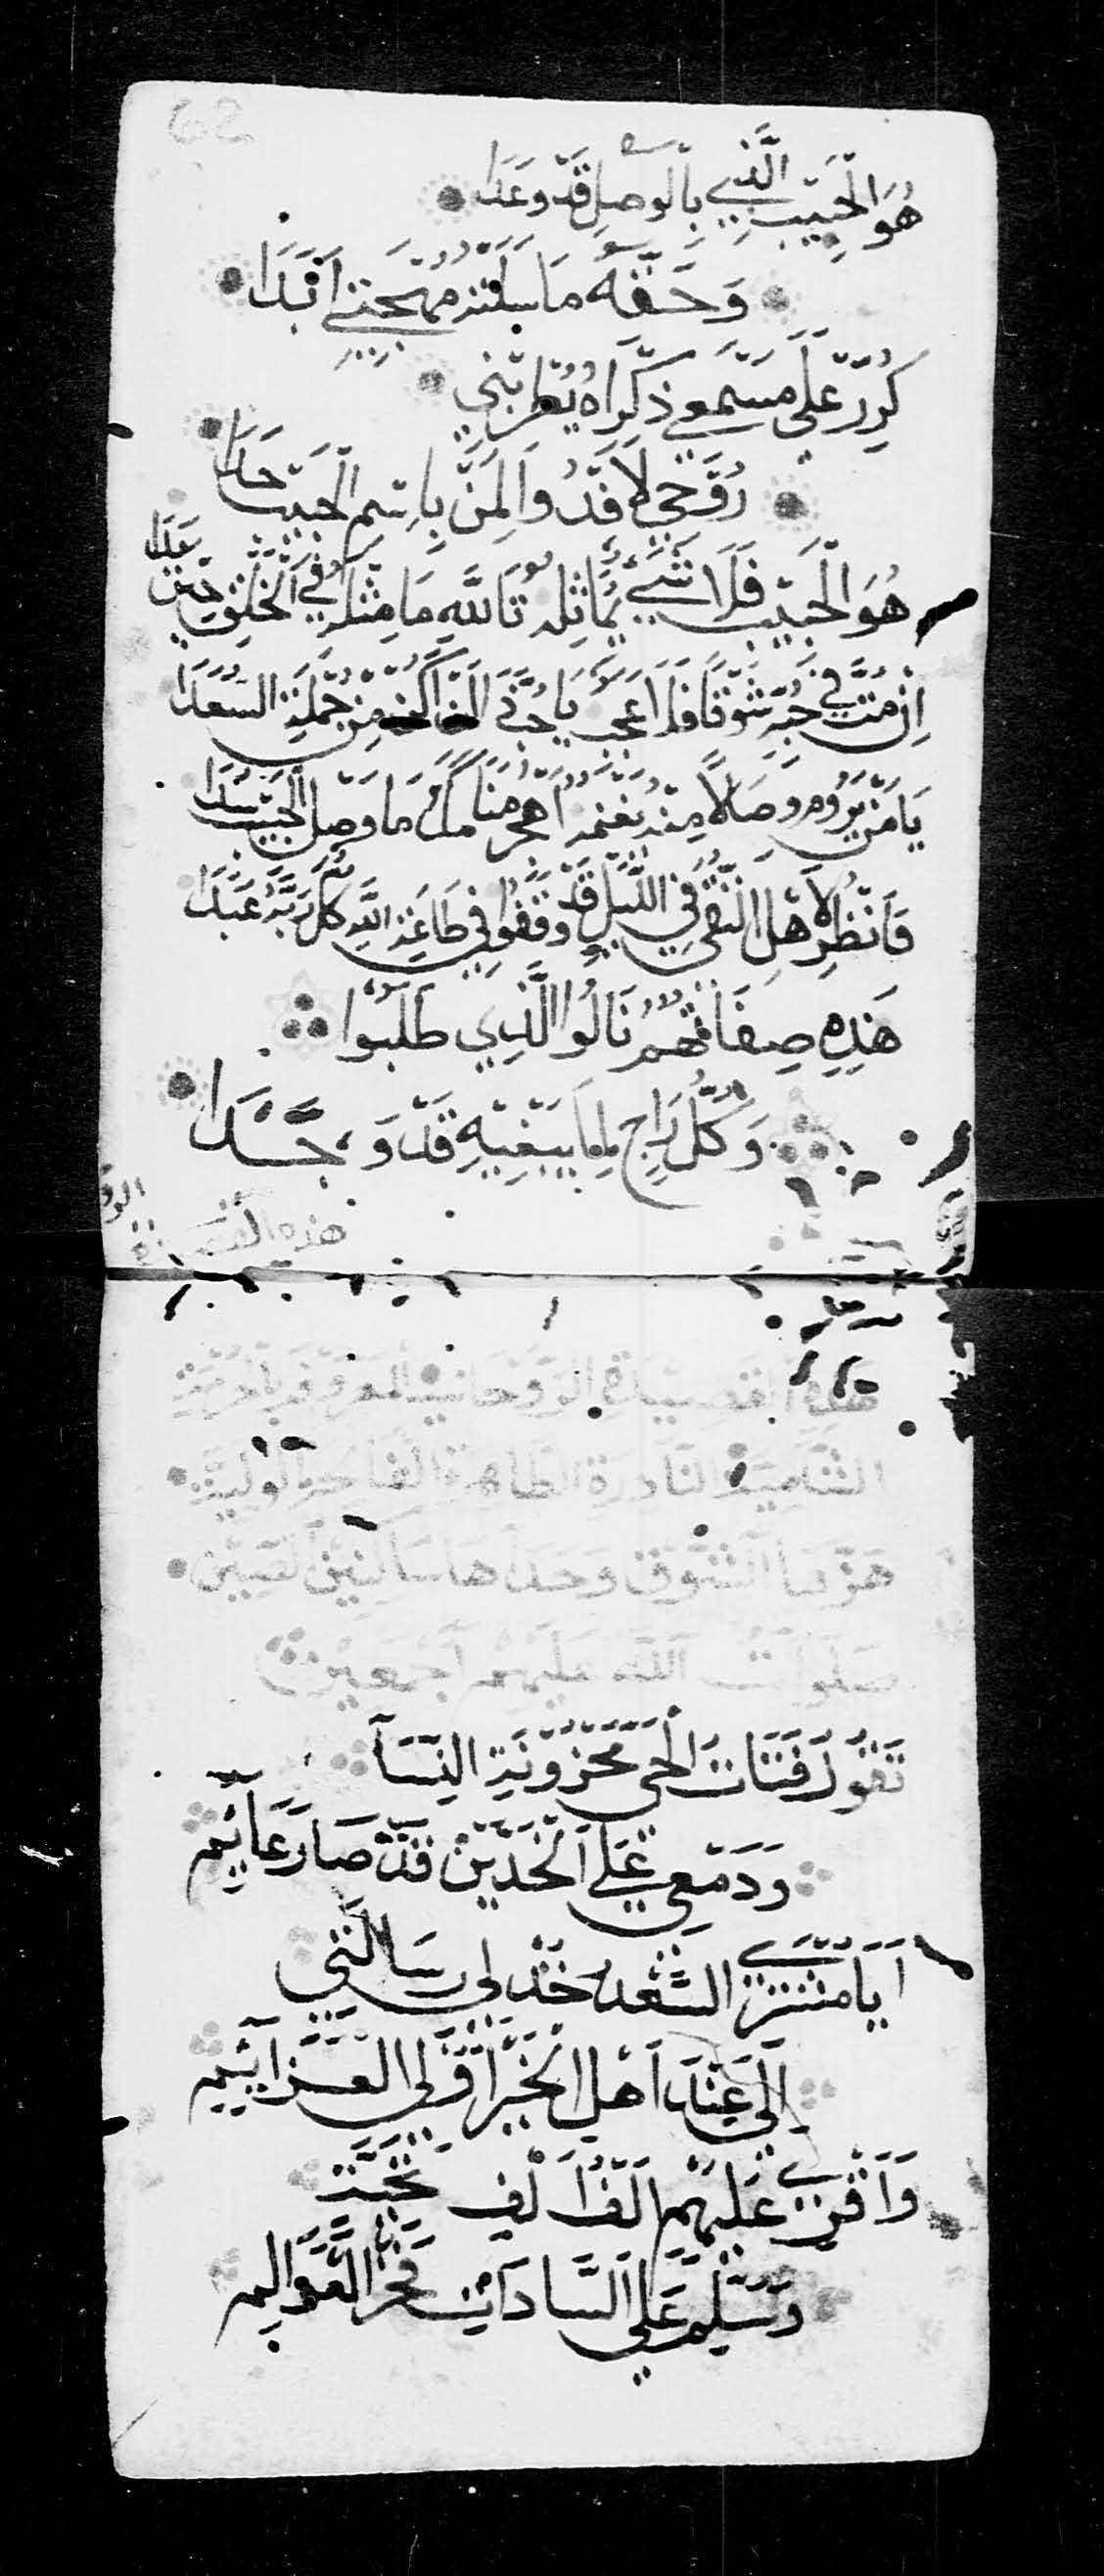 62
هُوَ الْحَبِيبُ الَّذِي بِالْوَصْلِ قَدْ وَعَدَا
وَحَقِّهِ مَا سَلَتْهُ مُهْجَتِي اَبَدَا
كَرِّرْ عَلَى مَسْمَعِي ذِكْرَاهُ يُطْرِبُنِي
رُوحِي فِدًا وَالِمَنْ بِاسْمِ الْحَبِيبِ حَدَا
هُوَ الْحَبِيبُ فَلَا شَيْ يُمَاثِلُهُ تَاللهِ مَا مِثْلُهُ فِي الْخَلْقِ
اِنْ مُتُّ فِي حُبِّهِ شَوْقًا فَلَا عَجَبٌ يَا حُبَّذَا اَكُنْ مِنْ جُمْلَةِ السُّعَدَا
يَا مَنْ يَرُومُ وَصَالًا مِنْهُ مَا وَصْلُ الْحَبِيبِ سُدَا
فَانْظُرْ لِاَهْلِ التُّقَى فِي اللَّيْلِ قَدْ وَقَفُوا فِي طَاعَةِ اللهِ كُلٌّ رَبَّهُ عَبَدَا
هَذِهِ صِفَاتُهُمْ نَالُوا الَّذِي طَلَبُوا
وَكُلُّ رَاجٍ لِمَا يَبْتَغِيهِ قَدْ وَجَدَا
هذه القصيدة
هَذِهِ الْقَصِيدَةُ الرَّوْحَانِيَّة الْمَعْرُوفَة
الشَّامِيَّة النَّادِرَةِ الظَّاهِرَة الْفَاخِرَة
هَزَّهَا الشَّوْقُ وَحَدَاهَا سَاكِنِينَ
صَلَوَاتُ اللهِ عَلَيْهِمْ اَجْمَعِينَ
تَقُولُ فَتَاتُ الْحَيِّ مَحْزُونَةُ النِّسَآ
وَدَمْعِي عَلَى الْخَدَّيْنِ قَدْ صَارَ عَآئِمِ
اَيَا مُشْتَرِي السَّعْدِ خُذْ لِي رِسَالَتِي
اِلَى عِنْدَ اَهْلِ الْخَيْرِ اَوْفَى الْعَزَآئِمِ
وَاَقْرِي عَلَيْهِمْ اَلْفَ اَلْفِ تَحِيَّةٍ
وَسَلِّمْ عَلَى السَّادَاتِ فَخْرِ الْعَوَالِمِ